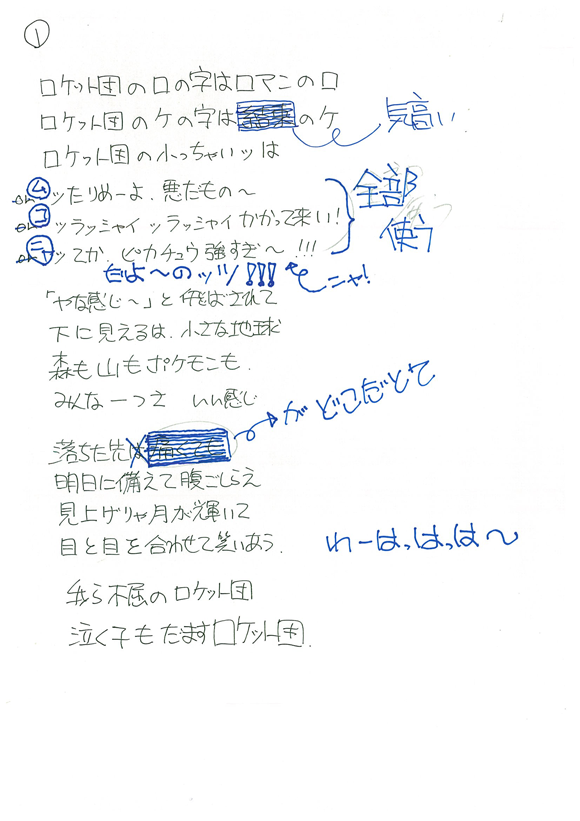 ①
ロケット団のロの字はロマンのロ
ロケット団のケの字は のケ
気高い
ロケット団の小っちゃいッは
ム ッたりめーよ、悪だもの〜
コ ッラッシャイッラッシャイかかって来い!
ニャ ッてか、ピカチュウ強すぎ〜!!!
全部
使う
だよ〜のッツ!!!
ニャ!
「やな感じ〜」と飛ばされて
下に見えるは、小さな地球
森も山もポケモンも、
みんな一つさ いい感じ
落ちた先
がどこだとて
明日に備えて腹ごしらえ
見上げりゃ月が輝いて
目と目を合わせて笑いあう、
わーはっはっは〜
我ら不屈のロケット団
泣く子もだますロケット団、